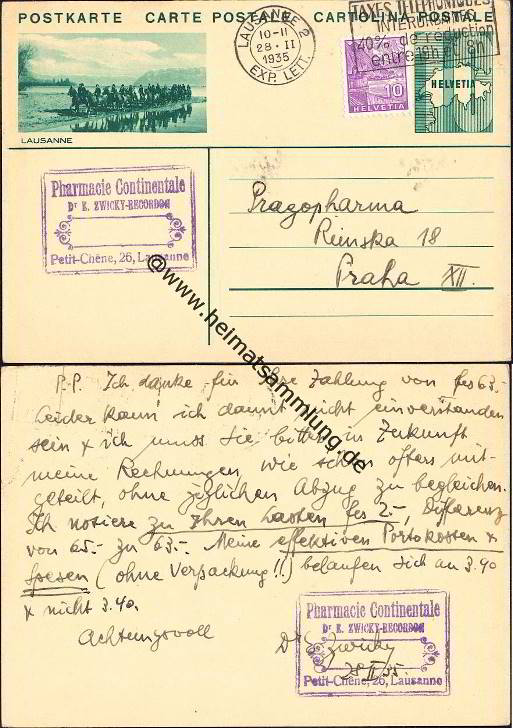 POSTKARTE CARTE POSTALE CARTOLINA POSTALE
LAUSANNE 2
10-11
28·II
1935
EXP. LETT.
TAXES TÉLÉPHONIQUES
INTERURBAINES
40% de réduction
entre 18h et 8h
10
HELVETIA
HELVETIA
LAUSANNE
Pharmacie Continentale
Dr E. ZWICKY-RECORDON
Petit-Chêne, 26, Lausanne
Pragopharma
Rimska 18
Praha XII.
@www.heimatsammlung.de
P.P. Ich danke für Ihre Zahlung von frs 63.-
Leider kann ich damit nicht einverstanden
sein & ich muss Sie bitten in Zukunft
meine Rechnungen, wie schon öfters mit-
geteilt, ohne jeglichen Abzug zu begleichen.
Ich notiere zu Ihren Lasten frs 2.-, Differenz
von 65.- zu 63.- Meine effektiven Portokosten &
Spesen (ohne Verpackung!!) belaufen sich an 3.90
& nicht 3.40.
Achtungsvoll
Dr E Zwicky
28 II 35.
Pharmacie Continentale
Dr E. ZWICKY-RECORDON
Petit-Chêne, 26, Lausanne